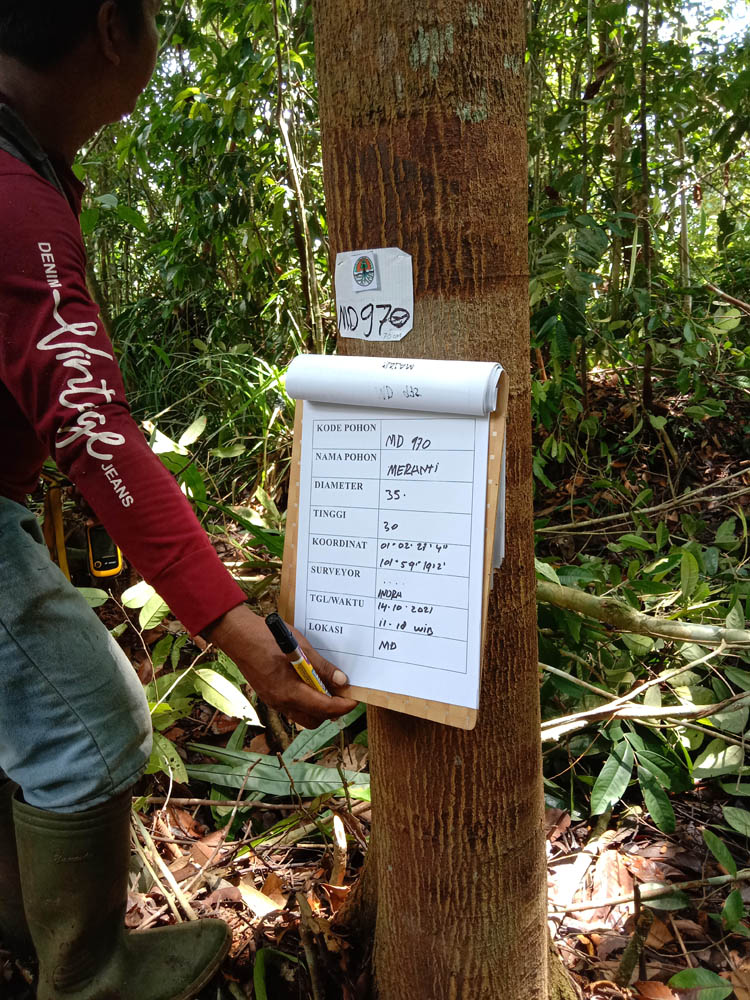 DENIM
Vintage
JEANS
MD 970
KODE POHON MD 970
NAMA POHON MERANTI
DIAMETER 35.
TINGGI 30
KOORDINAT 01° 02' 27' 4"
101° 59' 19'2'
SURVEYOR ....
INDRA
TGL/WAKTU 14.10.2021
11.18 WIB
LOKASI MD